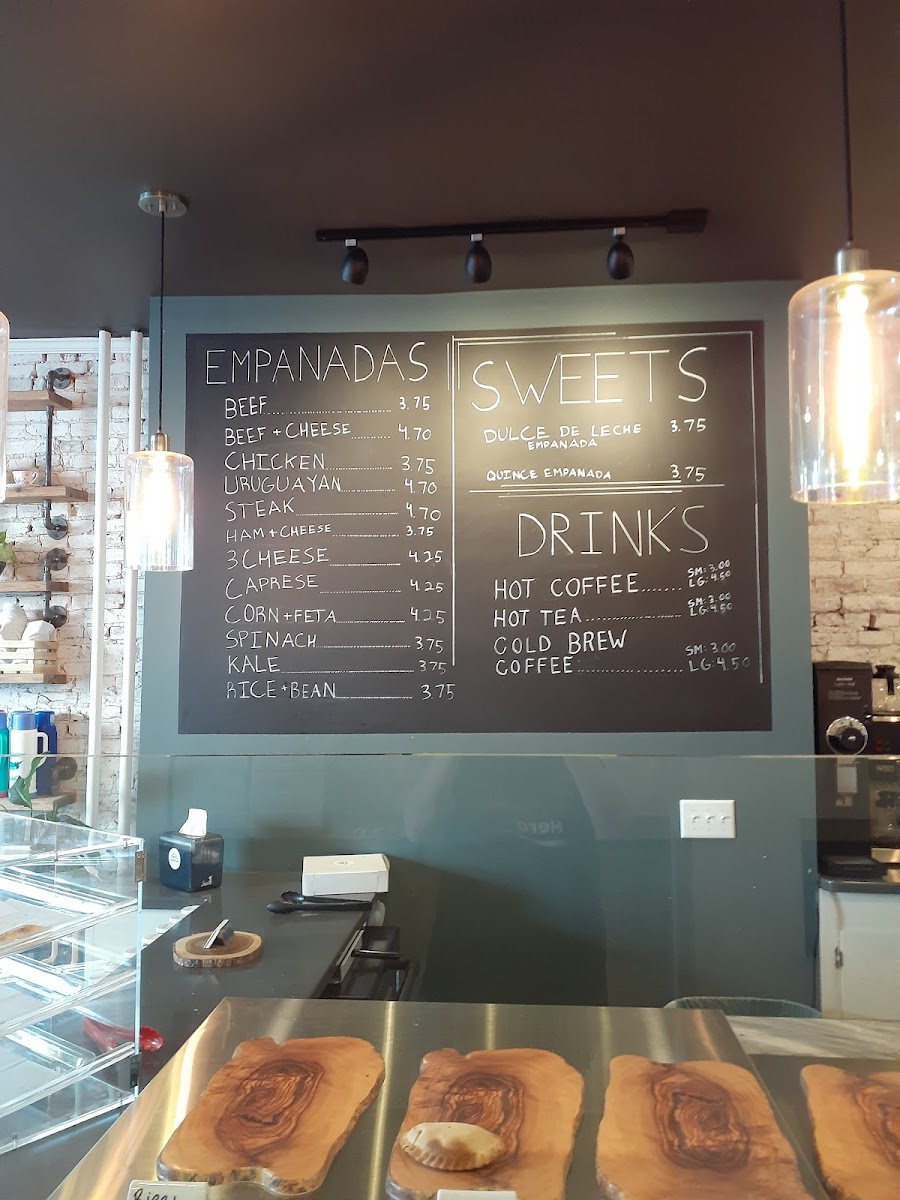 EMPANADAS
BEEF 3.75
BEEF + CHEESE 4.70
CHICKEN 3.75
URUGUAYAN 4.70
STEAK 4.70
HAM + CHEESE 3.75
3 CHEESE 4.25
CAPRESE 4.25
CORN + FETA 4.25
SPINACH 3.75
KALE 3.75
RICE + BEAN 3.75
SWEETS
DULCE DE LECHE 3.75
EMPANADA
QUINCE EMPANADA 3.75
DRINKS
HOT COFFEE SM: 3.00
LG: 4.50
HOT TEA SM: 3.00
LG: 4.50
COLD BREW
COFFEE SM: 3.00
LG: 4.50